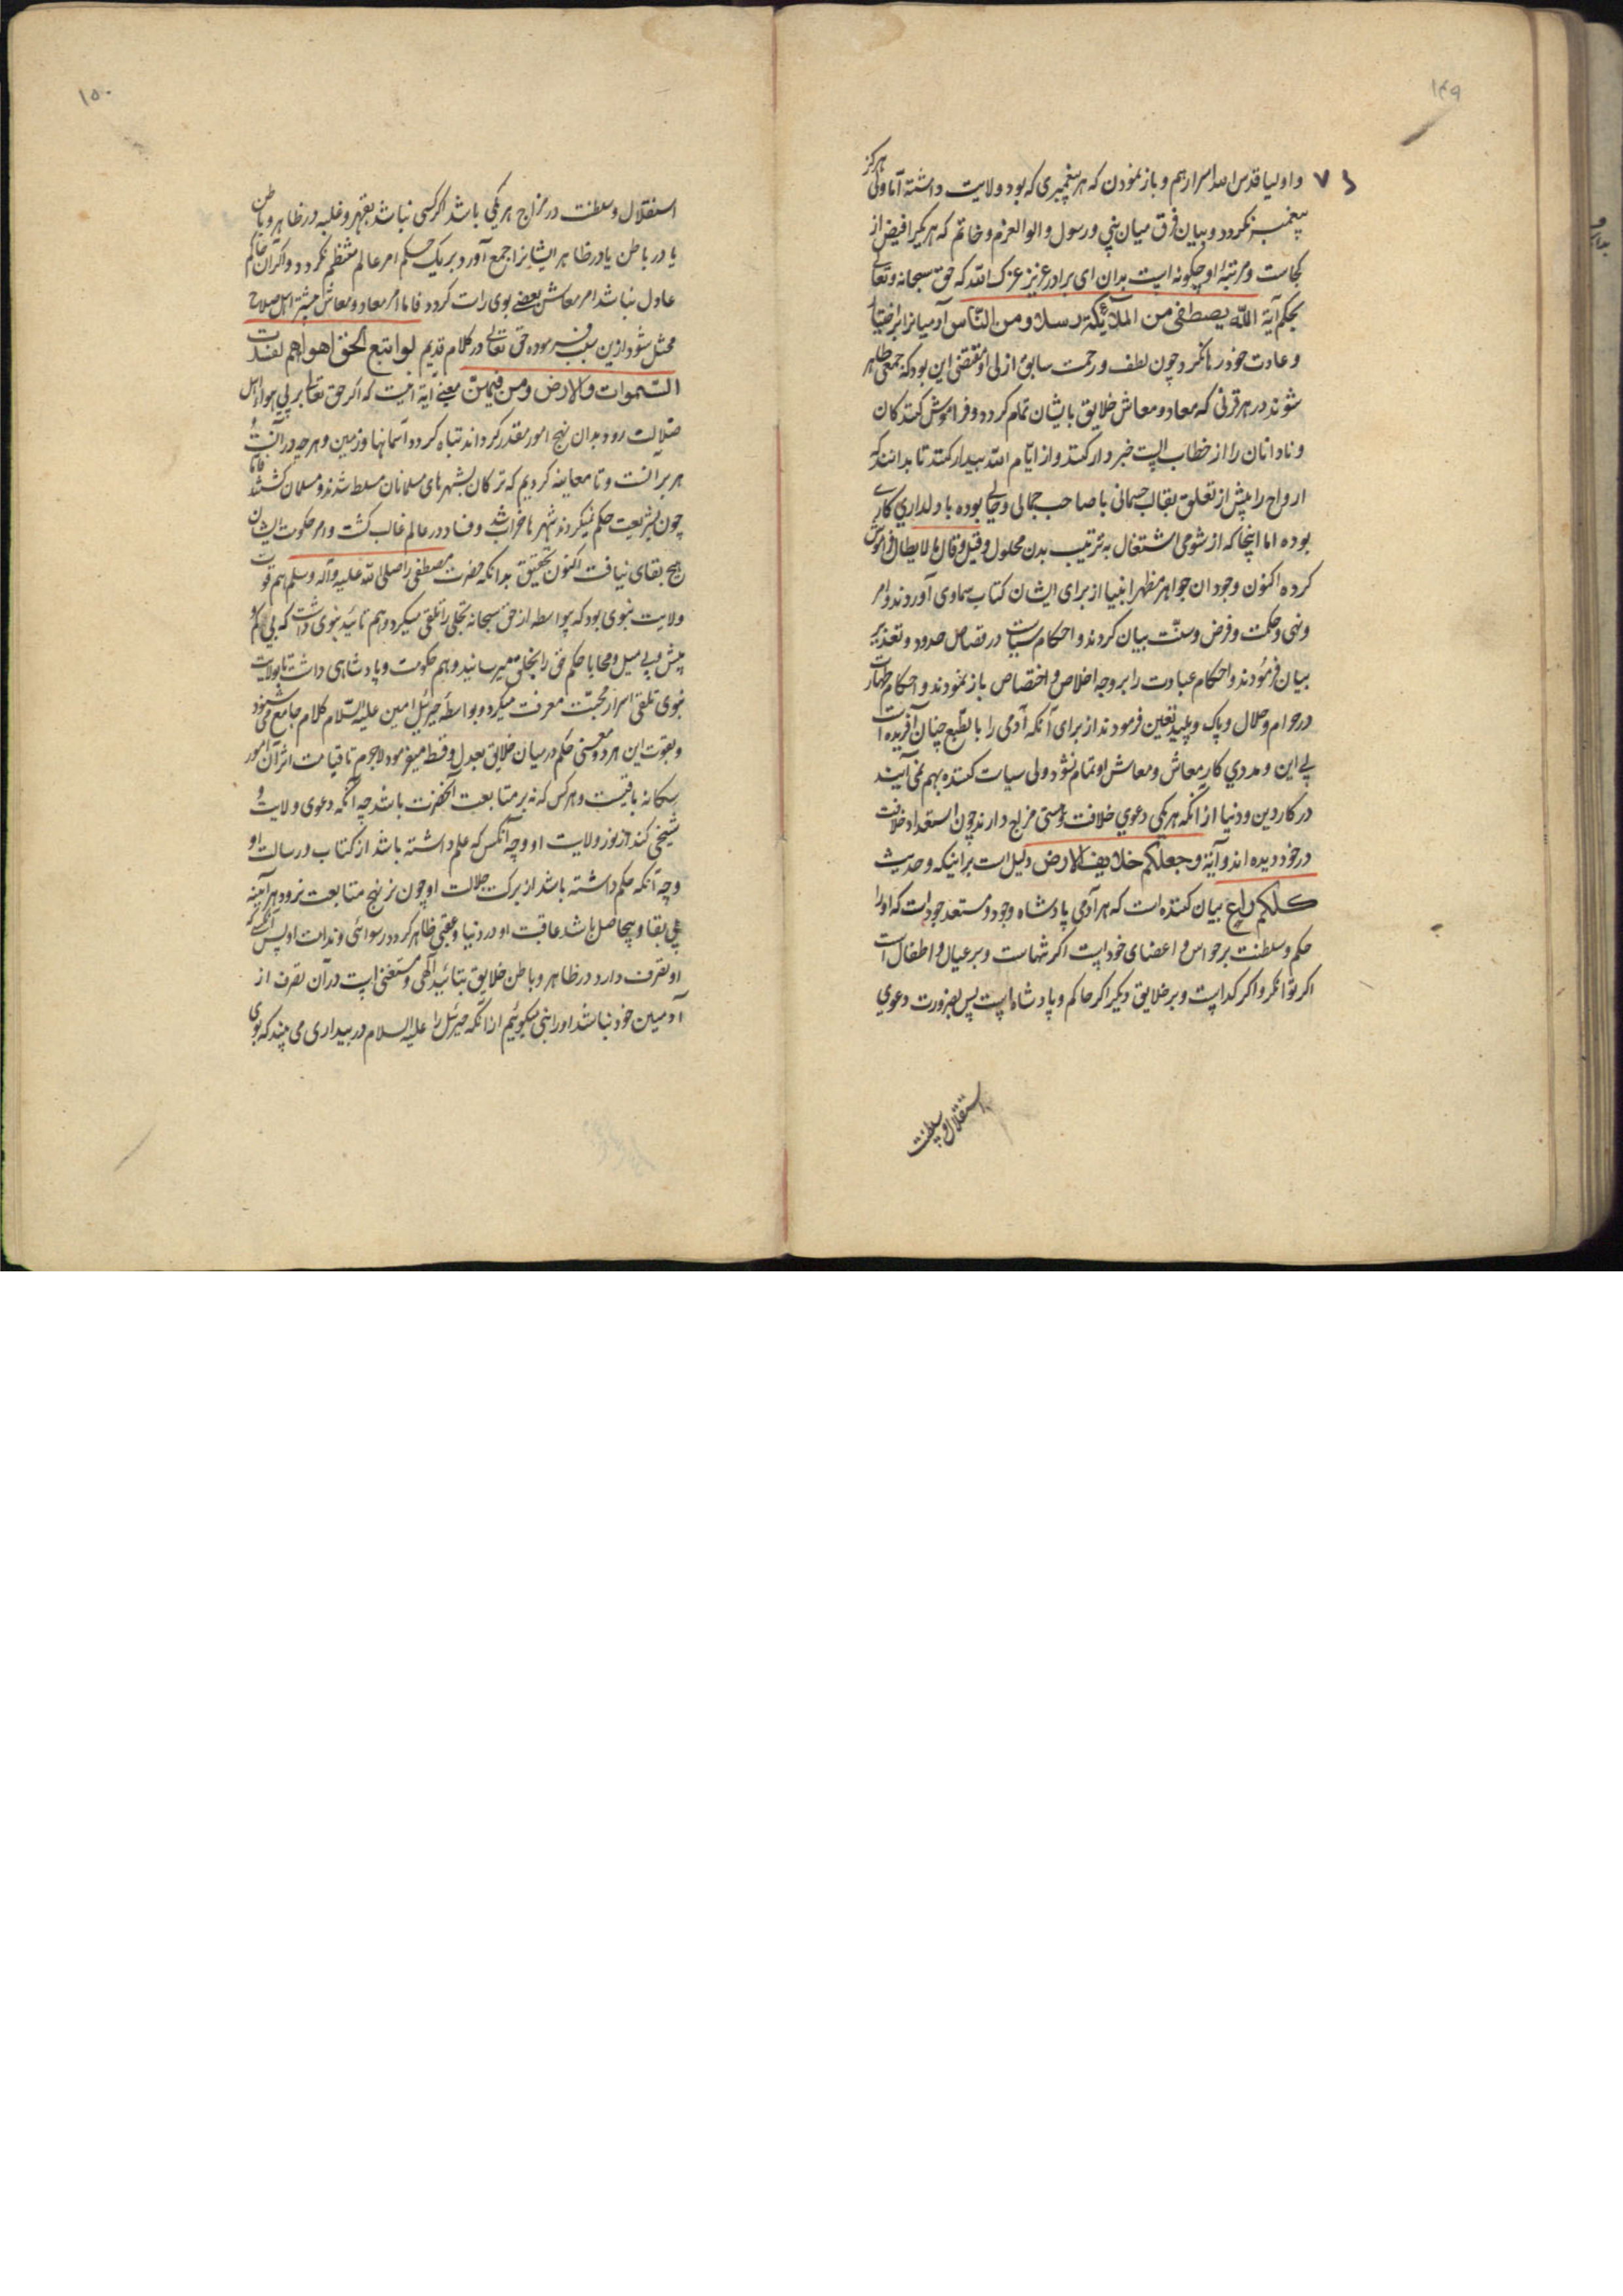 ۱۴۹
هرگز
واولیا قدس الله اسرارهم و باز نمودن که هر پیغمبری که بود ولایت داشته اما ولی
پیغمبر نکردد و بیان فرق میان نبی و رسول و الوالعزم و خاتم که هر یکیرا فیض از
کجاست و مرتبۀ او چکونه است بدان ای برادر عزیز عزک الله که حق سبحانه و تعالی
بحکم آیة الله یصطفی من الملائکة رسلا و من الناس آدمیانرا بر اختیار
و عادت خود رها نکرد چون لطف و رحمت سابق ازلی او مقتضی این بود که جمعی ظاهر
شوند در هر قرنی که معاد و معاش خلایق بایشان تمام کردد و فراموش کنندکان
و نادانان را از خطاب الست خبردار کنند و از ایام الله بیدار کنند تا بدانند که
ارواح را پیش از تعلق بقالب جسمانی با صاحب جمالی وحالی بوده با ولداری کاری
بوده اما اینجا که از شومی اشتغال به ترتیب بدن محلول و قیل و قال لا یطال فراموش
کرده اکنون وجود ان جواهر مظهر انبیا از برای ایشان کتاب سماوی آوردند و امر
و نهی و حکمت و فرض و سنّت بیان کردند و احکام سیاست در قصاص حدود و تعذیر
بیان فرمودند و احکام عبادت را بر وجه اخلاص و اختصاص باز نمودند و احکام طهارت
در حرام و حلال و پاک و پلید تعین فرمودند از برای آنکه آدمی را بالطبع چنان آفریده است
بی این و مددی کار معاش و معاش او تمام نشود ولی سیاست کننده بهم نمی آیند
در کار دین و دنیا از آنکه هر یکی دعوی خلافت و مستی مزاج دارند چون استعداد خلافت
در خود دیده اند و آیۀ وجعلکم خلایف الارض دلیل است بر اینکه و حدیث
کلکم راع بیان کننده است که هر آدمی پادشاه وجود و مستعد جود است که او را
حکم و سلطنت بر حواس و اعضای خود است اکر تنهاست و بر عیال و اطفال است
اکر توانکر و اکر کداست و بر خلایق دیکر اکر حاکم و پادشاه است پس بضرورت دعوی
استقلال و سلطنت
۱۵۰
استقلال و سلطنت در مزاج هر یکی باشد اکر کسی نباشد بقهر و غلبه در ظاهر و باطن
یا در باطن یا در ظاهر ایشانرا جمع آورد بر یک حکم امر عالم منتظم نکردد و اکر آن حاکم
عادل نباشد امر معاش بعضی بوی راست کردد فاما امر معاد و معاش بیشتر اهل صلاح
مختل شود ازین سبب فرموده حق تعالی در کلام قدیم لو اتبع الحق اهواهم لفسدت
السموات والارض ومن فیهن معنی آیه اینست که اکر حق تعالی بر پی هواء اهل
ضلالت رود بدان نهج امور مقدر کرداند تباه کردد آسمانها و زمین و هر چه در آنست و
هر بر آنست و تا معاینه کردیم که ترکان بشهرهای مسلمانان مسلط شدند و مسلمان کشتند فاما
چون بشریعت حکم نمیکردند شهرها خراب شد و فساد در عالم غالب کشت و امر حکومت ایشان
هیچ بقای نیافت اکنون تحقیق بدانکه حضرت مصطفی را صلی الله علیه و آله و سلم هم قوت
ولایت نبوی بود که بواسطه از حق سبحانه تجلی را تلقی میکرد و هم تائید نبوی داشت که بی کم و
بیش و بی میل و محابا حکم حق را بخلق میرسانید و هم حکومت و پادشاهی داشت تا بولایت
نبوی تلقی اسرار محبت معرفت میکرد و بواسطۀ جبرئیل امین علیه السلام کلام جامع می شنود
و بقوت این هر دو معنی حکم در میان خلایق بعدل و قسط میفرمود لاجرم تا قیامت اثر آن امور
سکانه باقیست و هر کس که نه بر متابعت آنحضرت باشد چه آنکه دعوی ولایت و
شیخی کند از نور ولایت او و چه آنکس که علم داشته باشد از کتاب و رسالت او
و چه آنکه حکم داشته باشد از برکت جلالت او چون نه بر نهج متابعت نرود هر آینه
بی بقا و بیحاصل باشد عاقبت او در دنیا و عقبی ظاهر کردد رسوائی و ندامت او پس آنکس که
او تصرف دارد در ظاهر و باطن خلایق بتائید آلهی و مستغنی است در آن تصرف از
آدمیین خود نباشد او را نبی میکوئیم از آنکه جبرئیل را علیه السلام در بیداری می بیند که بوی